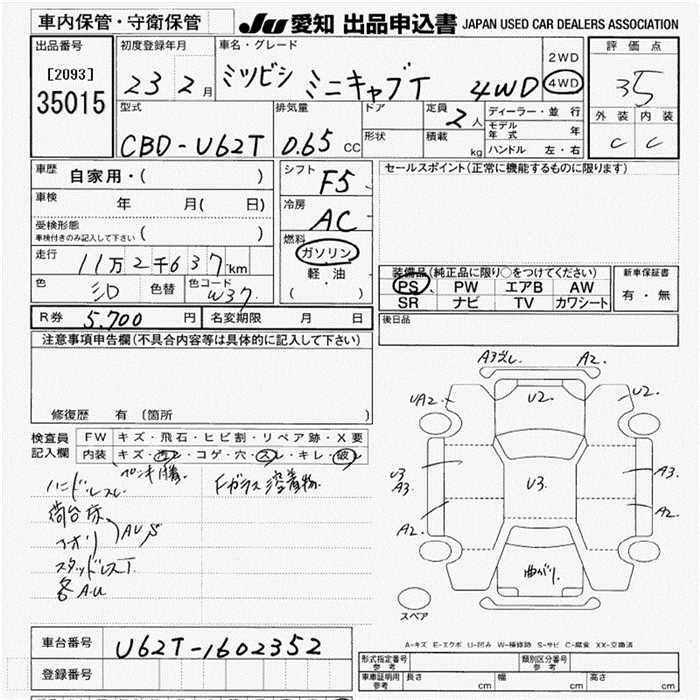 車内保管・守衛保管
JU 愛知 出品申込書 JAPAN USED CAR DEALERS ASSOCIATION
出品番号
[2093]
35015
初度登録年月
23 2月
車名・グレード
ミツビシ ミニキャブT 4WD
2WD
4WD
評価点
35
外装 内装
C C
型式
CBD-U62T
排気量
0.65 CC
ドア
形状
定員
2人
積載
kg
ディーラー・並行
モデル年式 年
ハンドル 左・右
車歴
自家用・( )
車検
年 月( 日)
受検形態
車検付きのみ記入して下さい ( )
走行
11万2千637km
色
シロ
色替
色コード
W37
シフト
F5
冷房
AC
燃料
ガソリン
軽・油
( )
セールスポイント(正常に機能するものに限ります)
装備品(純正品に限り○をつけてください)
PS PW エアB AW
SR ナビ TV カワシート
新車保証書
有・無
R券 5,700円
名変期限 月 日
後日品
注意事項申告欄(不具合内容等は具体的に記入して下さい)
修復歴 有 〔箇所 〕
検査員
記入欄
FW キズ・飛石・ヒビ割・リペア跡・X要
内装 キズ・汚レ・コゲ・穴・スレ・キレ・破レ
ハンドルスレ
ペンキ
Fガラス溶着物
荷台床
アオリ
AUS
スタッドレスT
各A.U
A3
A2.
UA2
U2.
U2.
U3
A3.
U3.
A3.
A2.
A2.
曲がり.
スペア
A-キズ E-エクボ U-凹み W-補修跡 S-サビ C-腐食 XX-交換済
車台番号
U62T-1602352
登録番号
形式指定番号
参考
類別区分番号
参考
車庫証明用
参考
長さ cm
幅 cm
高さ cm